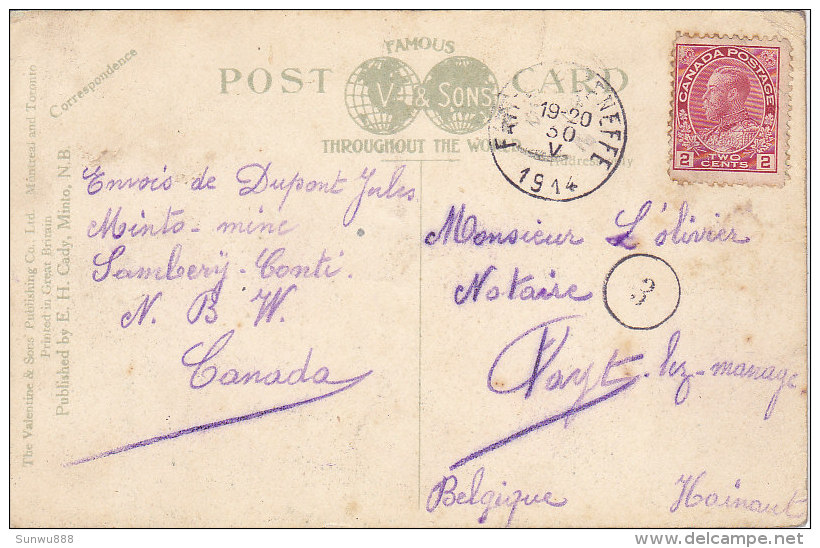 The Valentine & Sons' Publishing Co., Ltd. Montreal and Toronto
Printed in Great Britain
Published by E. H. Cady, Minto, N.B.
Correspondence
POST CARD
FAMOUS
V & SONS
THROUGHOUT THE
19-20
30
V
1914
CANADA POSTAGE
2 TWO CENTS 2
Envois de Dupont Jules
Minto-mine
Sambery-Conti.
N. B W.
Canada
Monsieur L'olivier
Notaire
3
Fayt-lez-manage
Belgique Hainaut
Sunwu888
delcampe.net